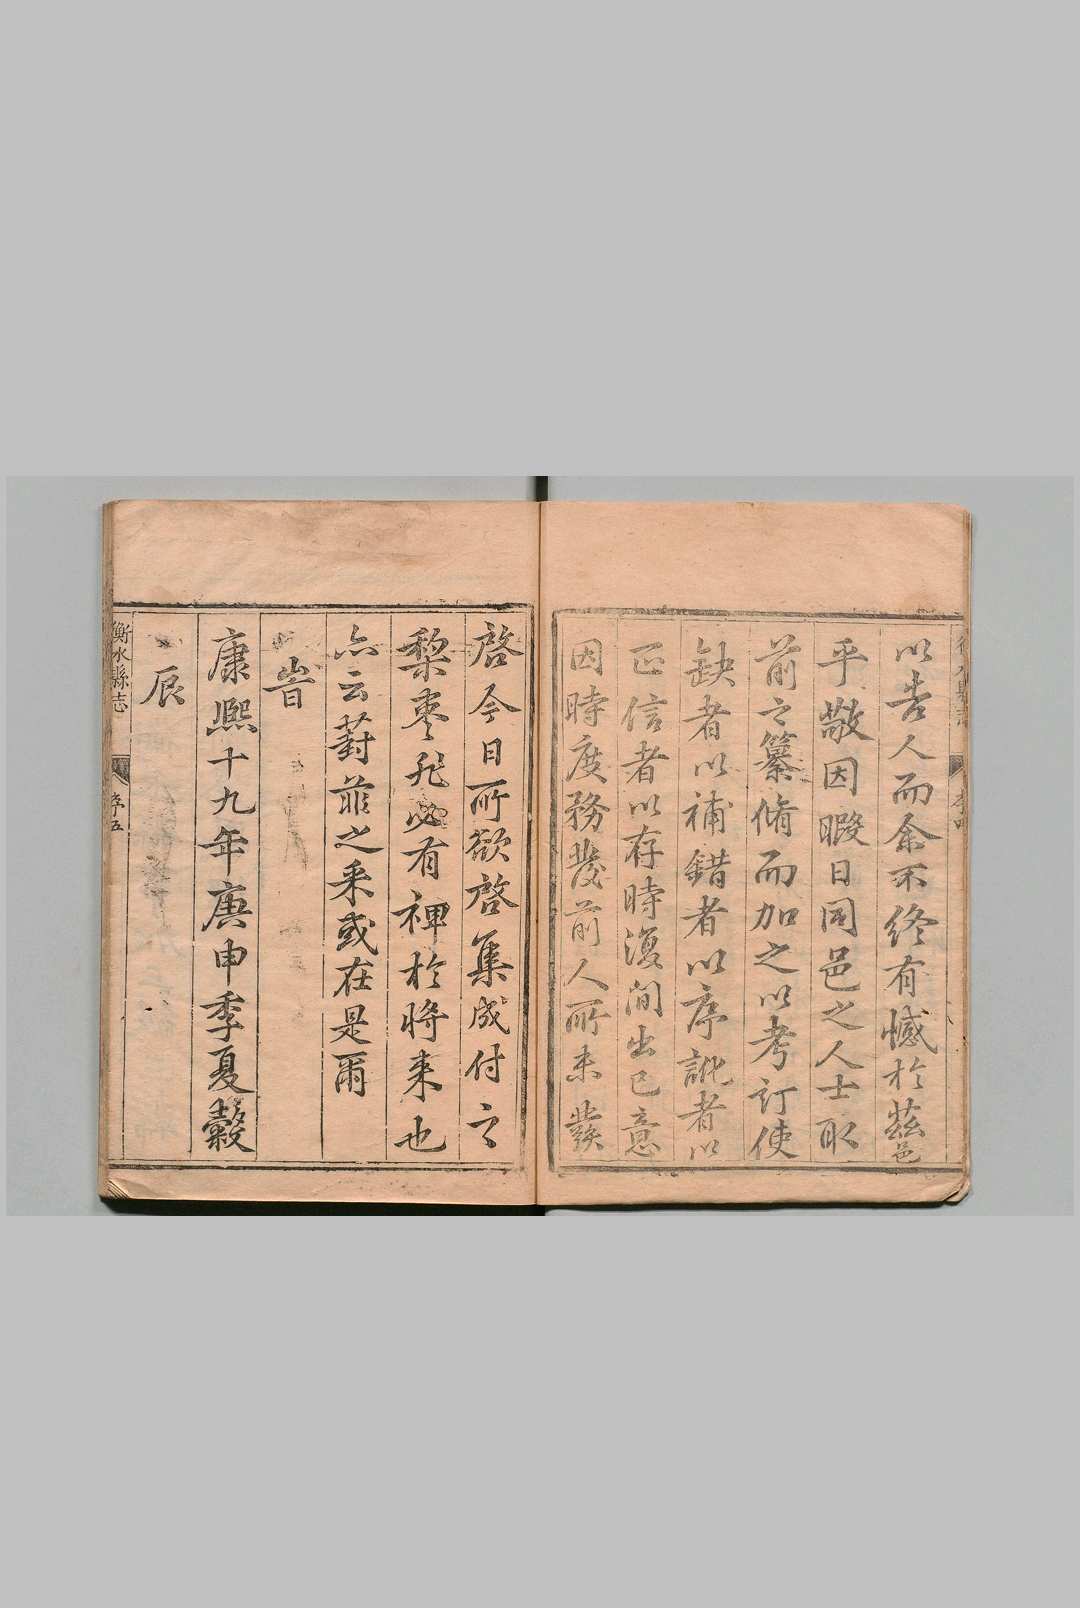 以告人而余不終有憾於茲邑
乎敬因暇日同邑之人士取
前之纂脩而加之以考訂使
缺者以補錯者以序訛者以
正信者以存時復間出已意
因時度務發前人所未發
啓今日所欲啓集成付之
梨棗非必有裨於將來也
亦云葑菲之采或在是爾
旹
康熙十九年庚申季夏穀
辰
衡水縣志
序五